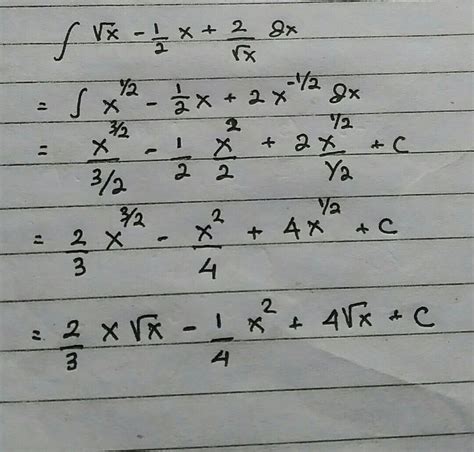 ∫ √x - 1/2 x + 2/√x dx
= ∫ x^(1/2) - 1/2 x + 2x^(-1/2) dx
= x^(3/2)/(3/2) - 1/2 x^2/2 + 2x^(1/2)/(1/2) + C
= 2/3 x^(3/2) - x^2/4 + 4x^(1/2) + C
= 2/3 x√x - 1/4 x^2 + 4√x + C